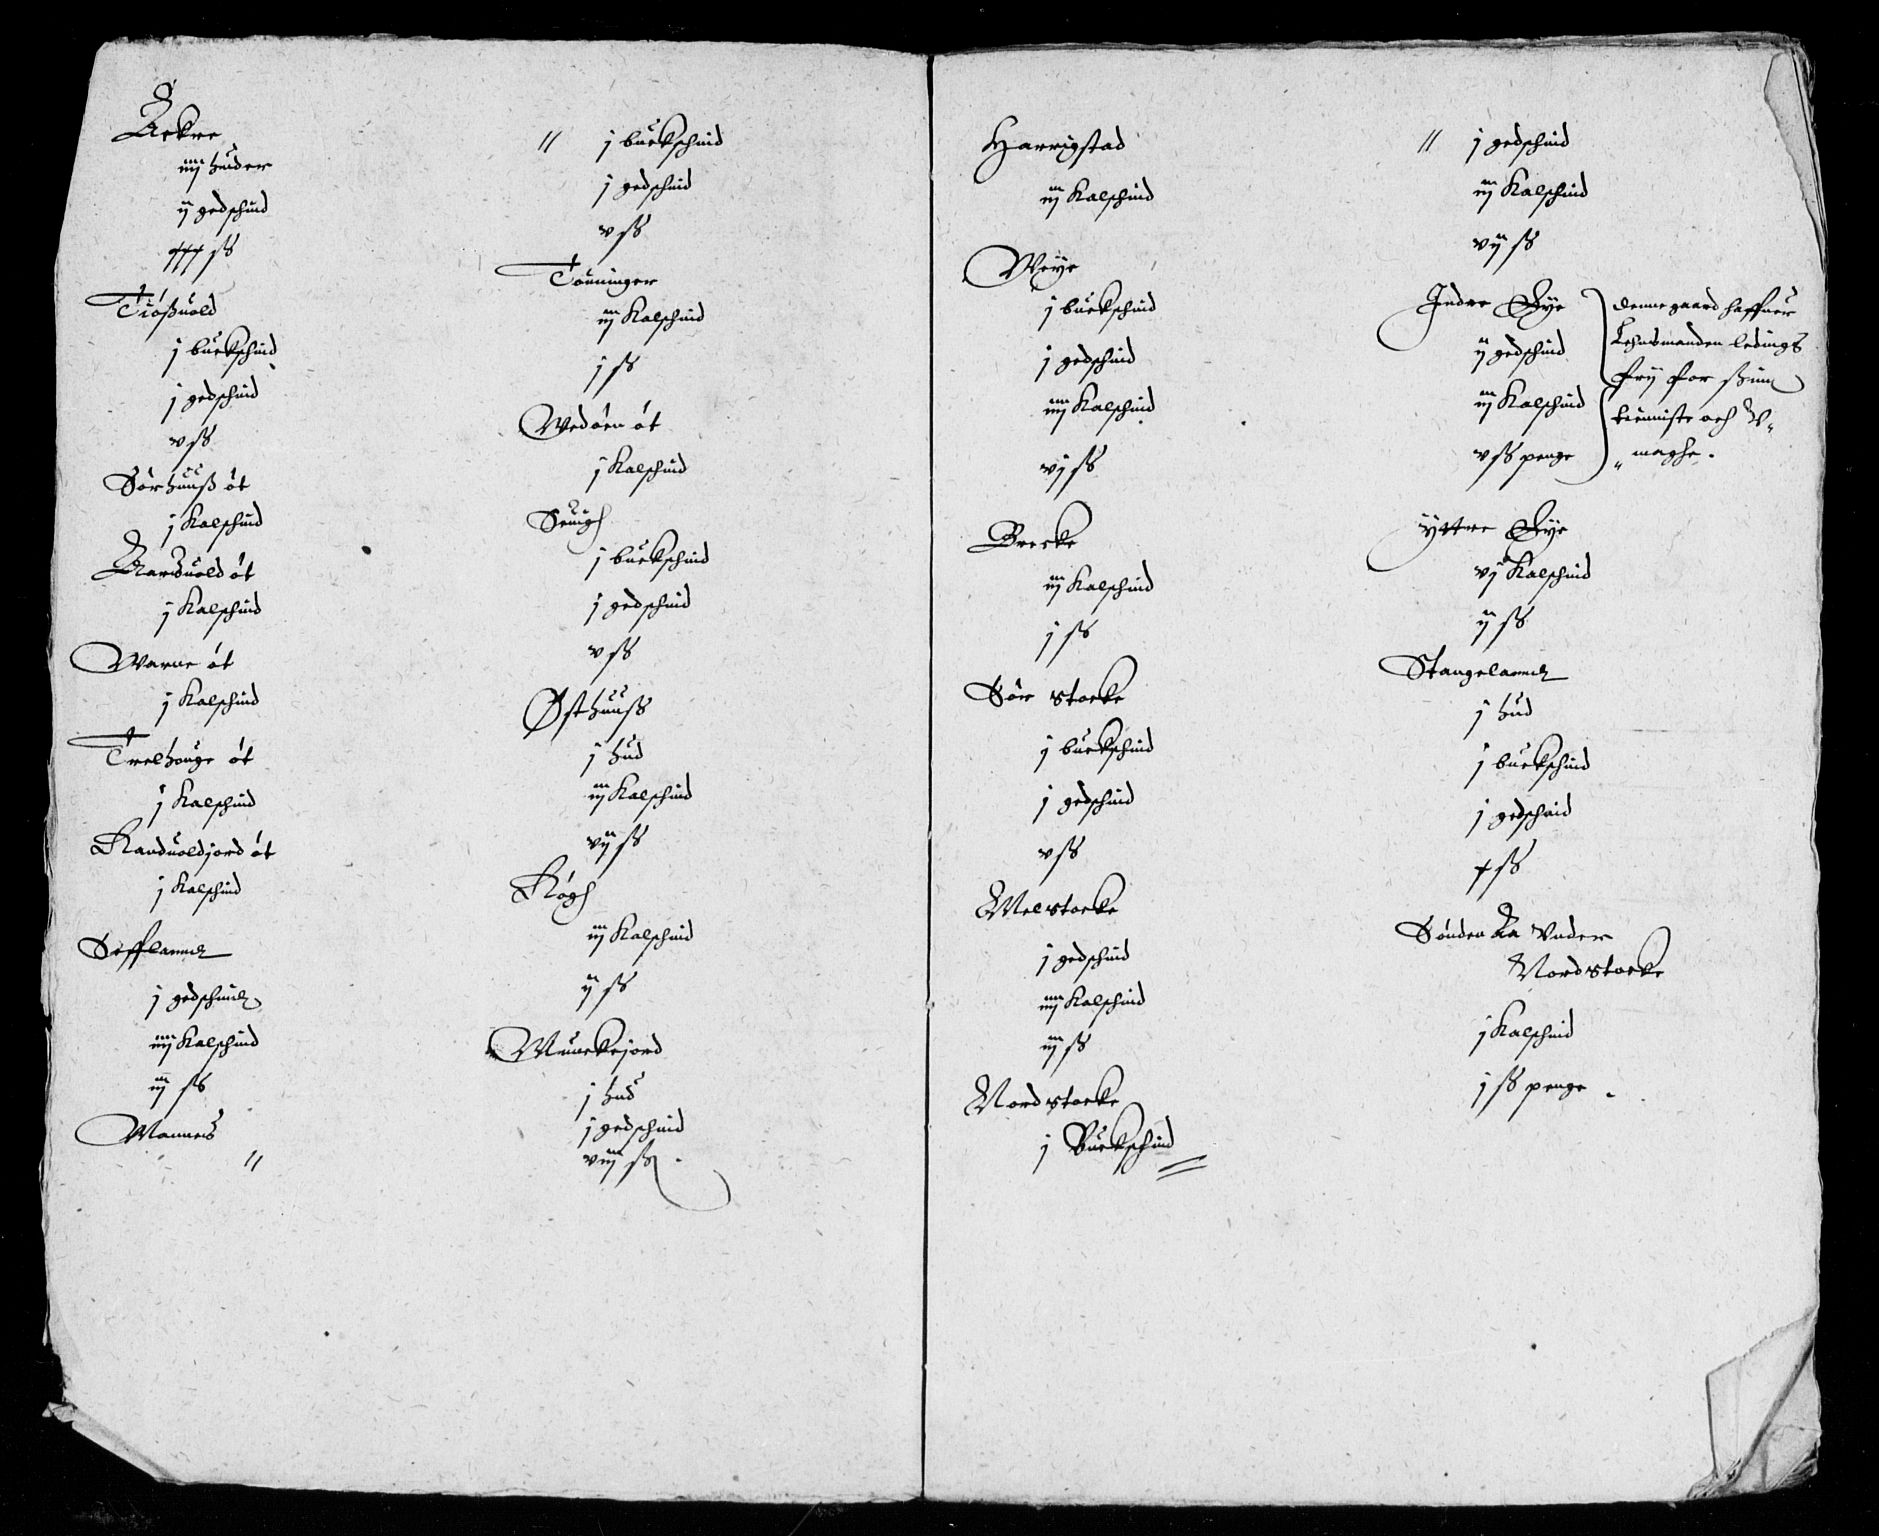 Aekre
iiij huder
ij gedschind
xxx ss
Tiößuold
j buckschind
j gedschind
v ss
Sörhuuß öt
j Kalschind
Aarsuold öt
j Kalschind
Warne öt
j Kalschind
Trelhouge öt
j Kalschind
Randuoldjord öt
j Kalschind
Sefflannd
j gedschind
iiij Kalschind
iij ss
Mannes
//
// j buckschind
j gedschind
v ss
Tönninger
iij Kalschind
j ss
Wedöen öt
j Kalschind
Seuigh
j buckschind
j gedschind
v ss
Østhuuß
j hud
iij Kalschind
vij ss
Røgh
iij Kalschind
ij ss
Munckejord
j hud
j gedschind
viij ss
Harrigstad
iij Kalschind
Weye
j buckschind
j gedschind
iiij Kalschind
vj ss
Brecke
iij Kalschind
j ss
Sör stocke
j buckschind
j gedschind
v ss
Melstocke
j gedschind
iiij Kalschind
iij ss
Nordstocke
j Buckschind
// j gedschind
iij Kalschind
vij ss
Indre Øye
ij gedschind
iij Kalschind
v ss penge
denne gaard haffuer
Lehnsmanden ledings
frij for sin
tienniste och V-
maghe.
Yttre Øye
vj Kalschind
ij ss
Stangelannd
j hud
j buckschind
j gedschind
x ss
Sönden Aa Vnder
Nordstocke
j Kalschind
j ss penge